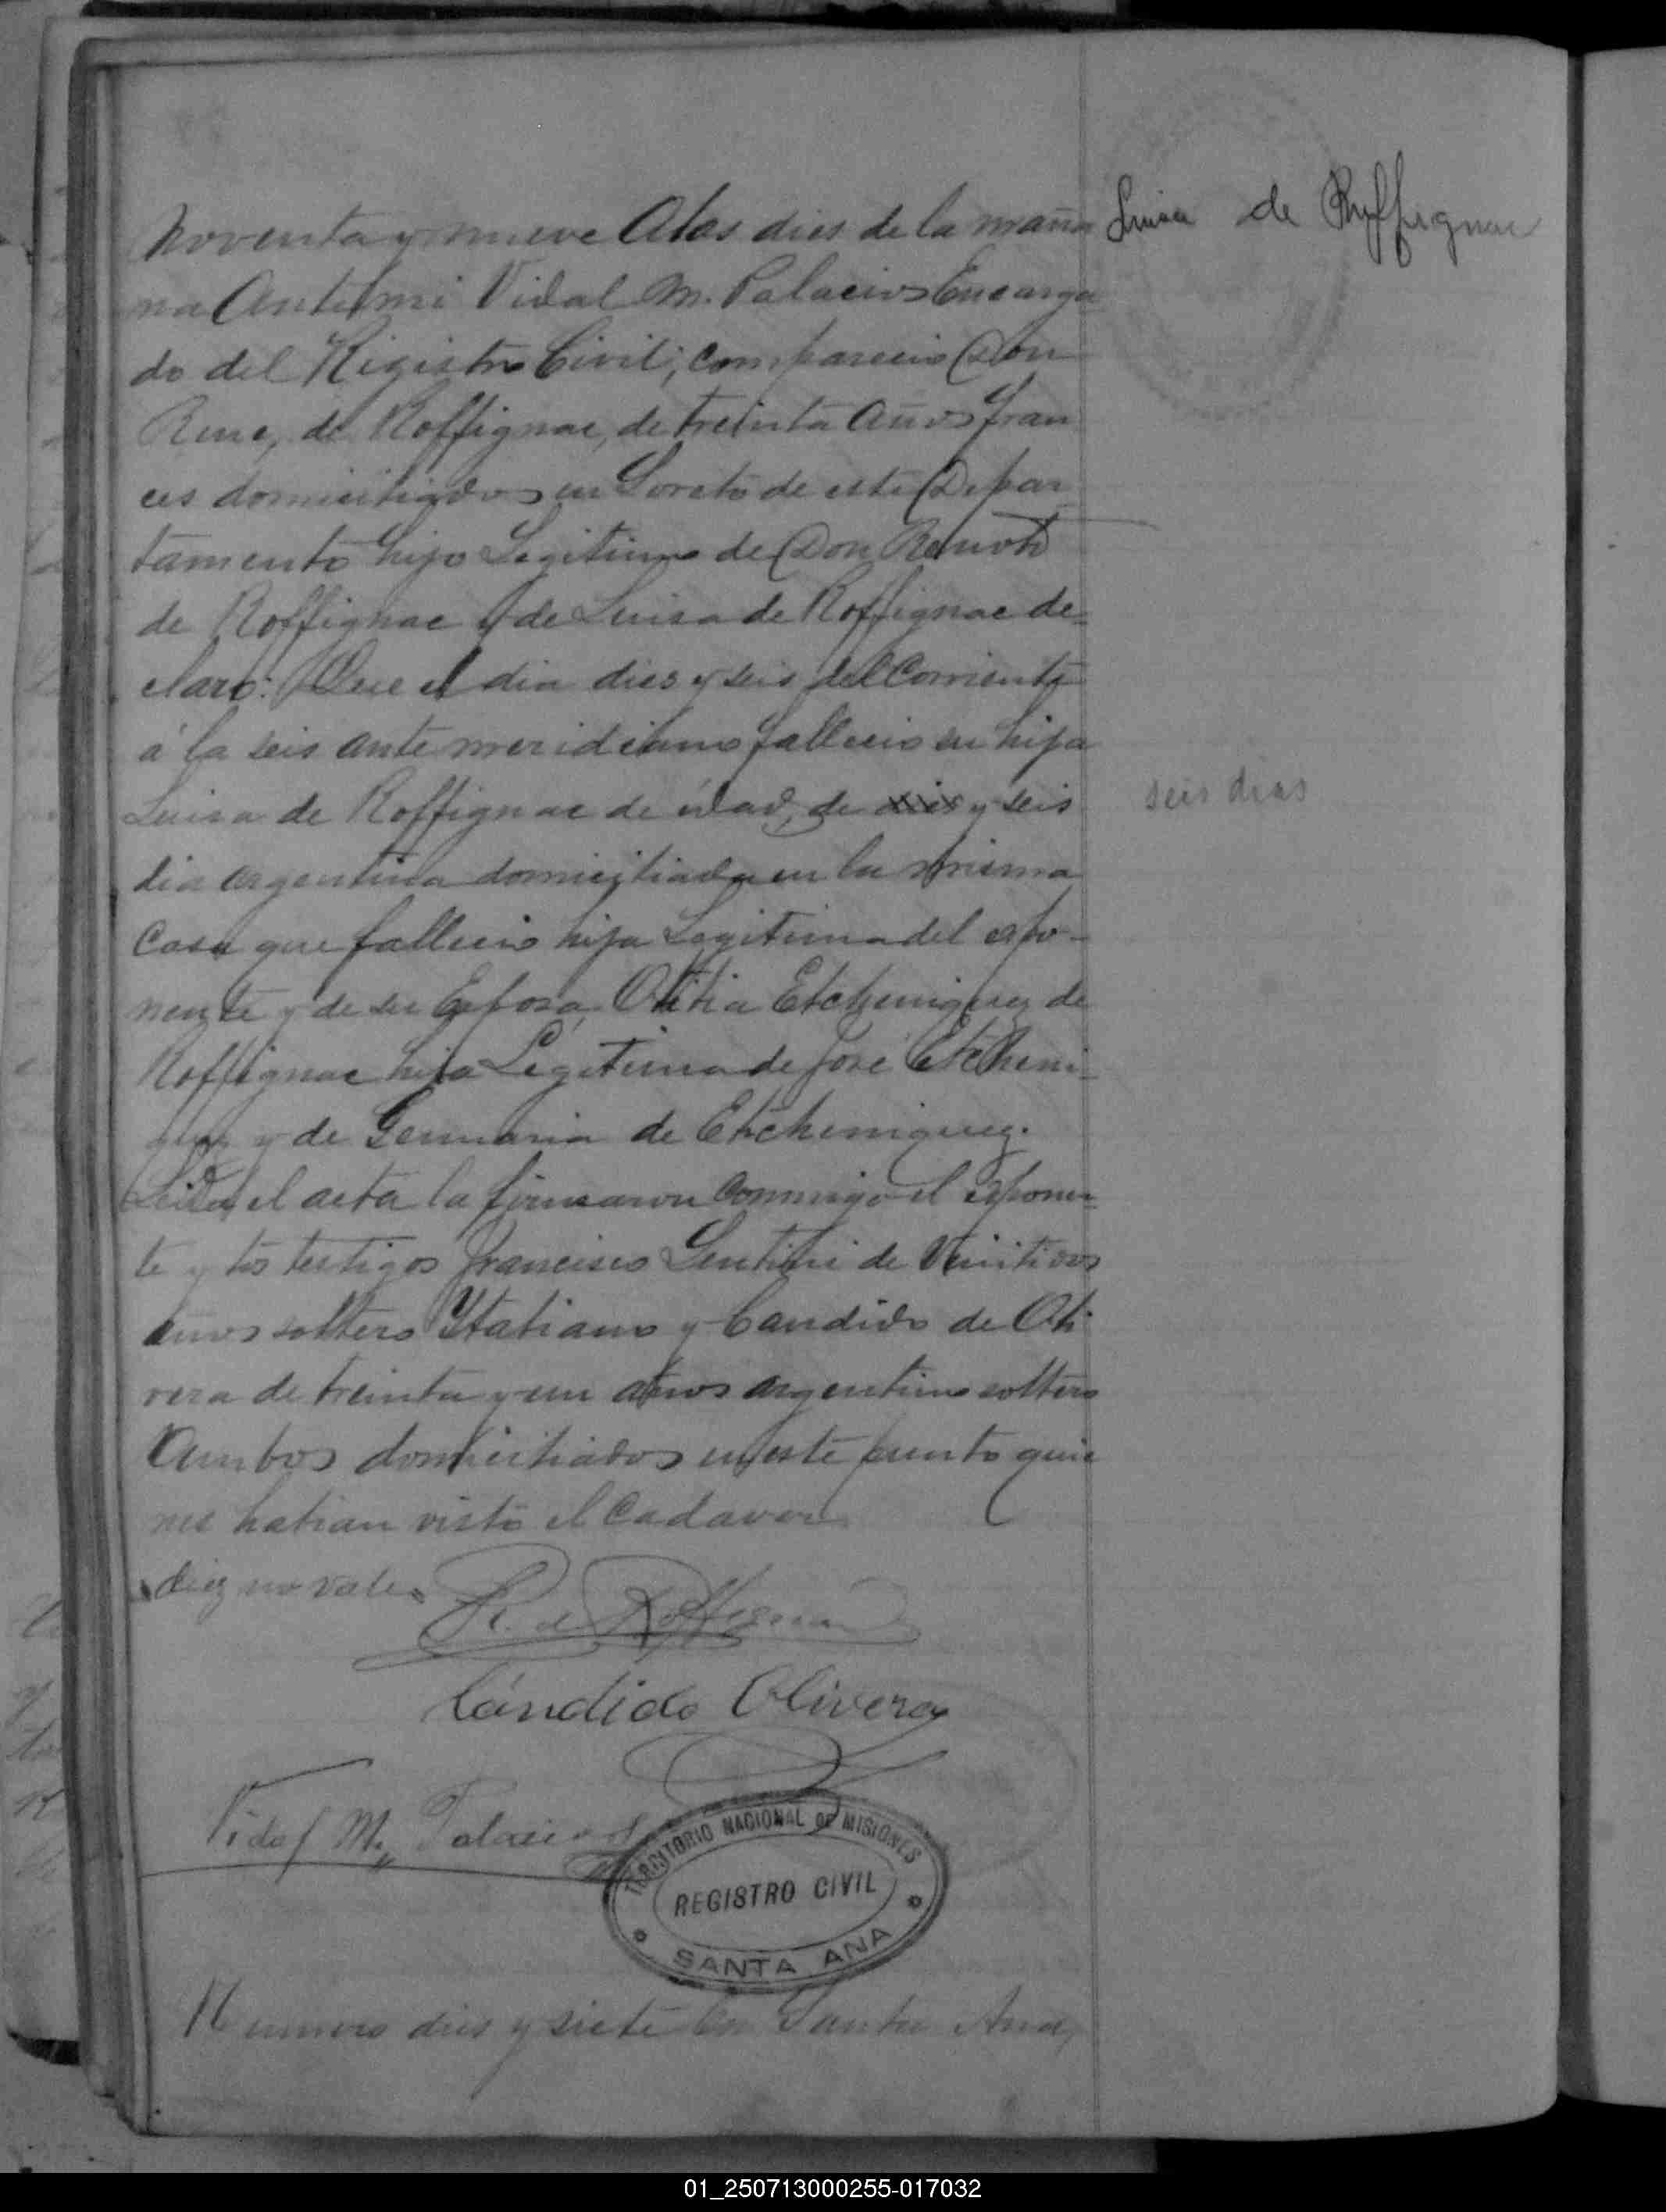 noventa y nueve Alas dies de la maña
na Ante mi Vidal M. Palacios Encarga
do del Registro Civil; comparecio Don
Rene, de Roffignac, de treinta años fran
ces domiciliados en Loreto de este Depar
tamento hijo Legitimo de Don
de Roffignac y de Luisa de Roffignac de=
claro: Que el dia dies y seis del Corriente
á la seis ante meridiano fallecio su hija
Luisa de Roffignac de edad, de dies y seis
dia argentina domiciliada en la misma
Casa que fallecio hija Legitima del espo-
nente y de su Esposa Etcheniquez de
Roffignac hija Legitima de José Etcheni-
quez y de de Etcheniquez.
Leida el acta la firmaron conmigo el esponen=
te y los testigos Francisco de Veintidos
años soltero Ytaliano y Candido de Oli
vera de treinta y un años argentino soltero
Ambos domiciliados en este punto quie
nes habian visto el Cadaver
diez no vale.
R. de Roffignac
Cándido Olivera
Vidal M. Palacios
TERRITORIO NACIONAL DE MISIONES
REGISTRO CIVIL
SANTA ANA
Numero dies y siete En Santa Ana,
Luisa de Roffignac
seis dias
01_250713000255-017032